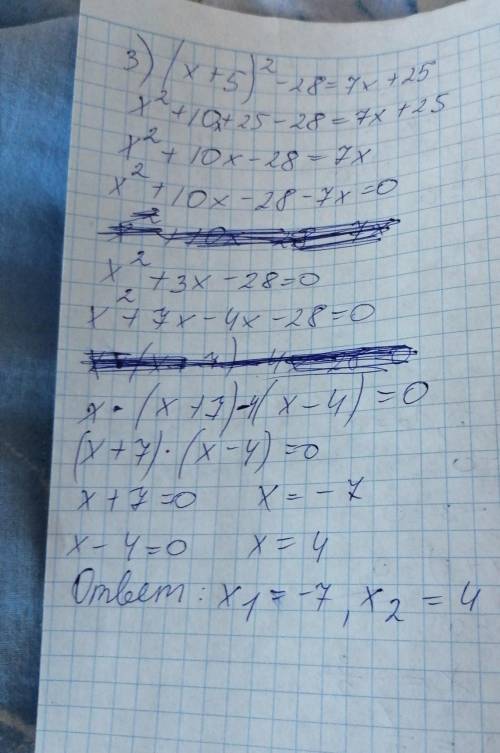 3) (x+5)² - 28 = 7x + 25
x² + 10x + 25 - 28 = 7x + 25
x² + 10x - 28 = 7x
x² + 10x - 28 - 7x = 0
x² + 3x - 28 = 0
x² + 7x - 4x - 28 = 0
x · (x + 7) - 4(x - 4) = 0
(x + 7) · (x - 4) = 0
x + 7 = 0 x = -7
x - 4 = 0 x = 4
Ответ: x₁ = -7, x₂ = 4